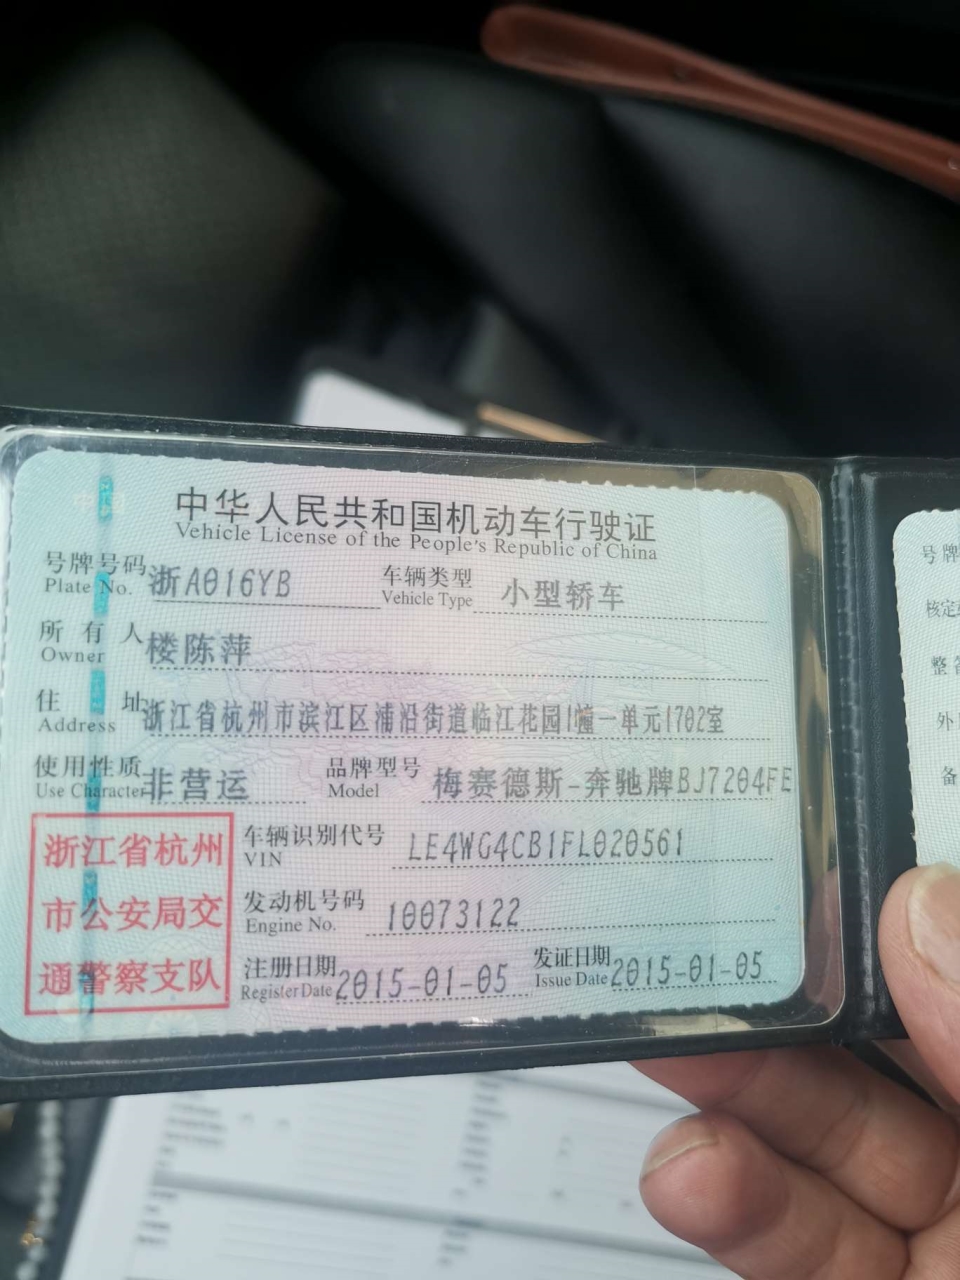 中华人民共和国机动车行驶证
Vehicle License of the People's Republic of China
号牌号码 浙A016YB 车辆类型 小型轿车
Plate No. Vehicle Type
所有人 楼陈萍
Owner
住址 浙江省杭州市滨江区浦沿街道临江花园1幢一单元1702室
Address
使用性质 非营运 品牌型号 梅赛德斯-奔驰牌BJ7204FE
Use Character Model
浙江省杭州
市公安局交
通警察支队
车辆识别代号 LE4WG4CB1FL020561
VIN
发动机号码 10073122
Engine No.
注册日期 2015-01-05 发证日期 2015-01-05
Register Date Issue Date
号牌
核定
整备
外
备